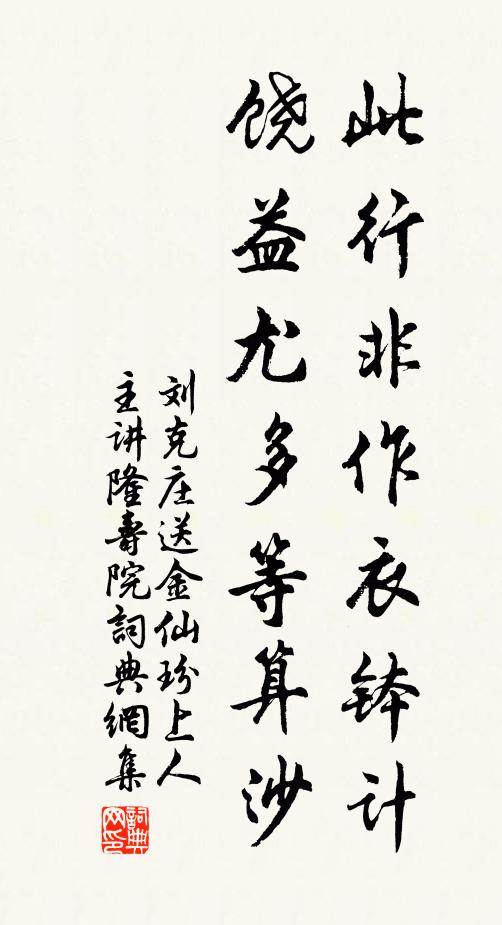 此行非作衣钵计
饶益尤多等算沙
刘克庄送金仙玢上人
主讲隆壽院詞典網集
詞典
网印